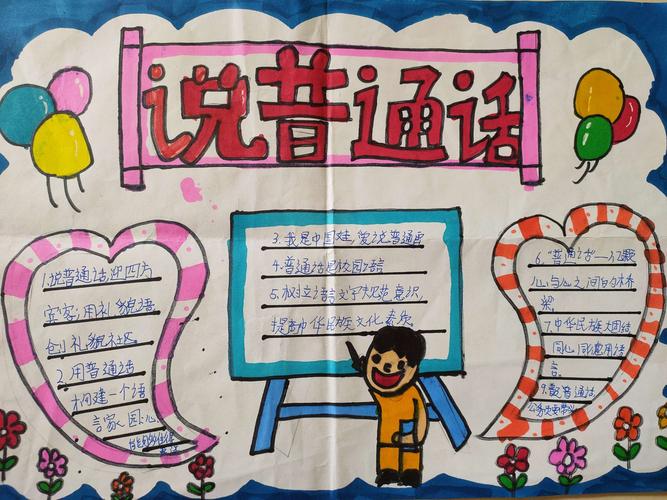 说普通话
1.说普通话迎四方
宾客;用礼貌语
创礼貌社区
2.用普通话
构建一个语
言家园;心
3.我是中国娃,爱说普通话
4.普通话是校园语言
5.树立语言文字规范意识,
提高中华民族文化素质
6."普通话"—亿颗
心与心之间的桥
梁
7.中华民族大团结
同心同德用语
言.
9.普通话,
公务员要带头